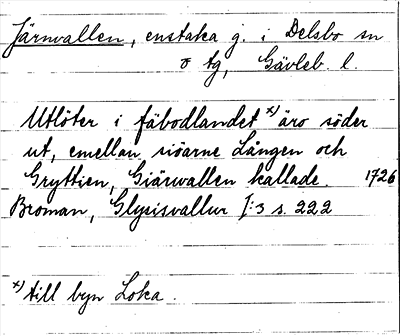 Järnvallen, enstaka g. i Delsbo sn
o tg, Gävleb. l.
Utlöter i fäbodlandet x) äro söder
ut, emellan siöarne Lången och
Gryttien, Giärwallen kallade. 1726
Broman, Glysisvallur I:3 s. 222
x) till byn Loka.